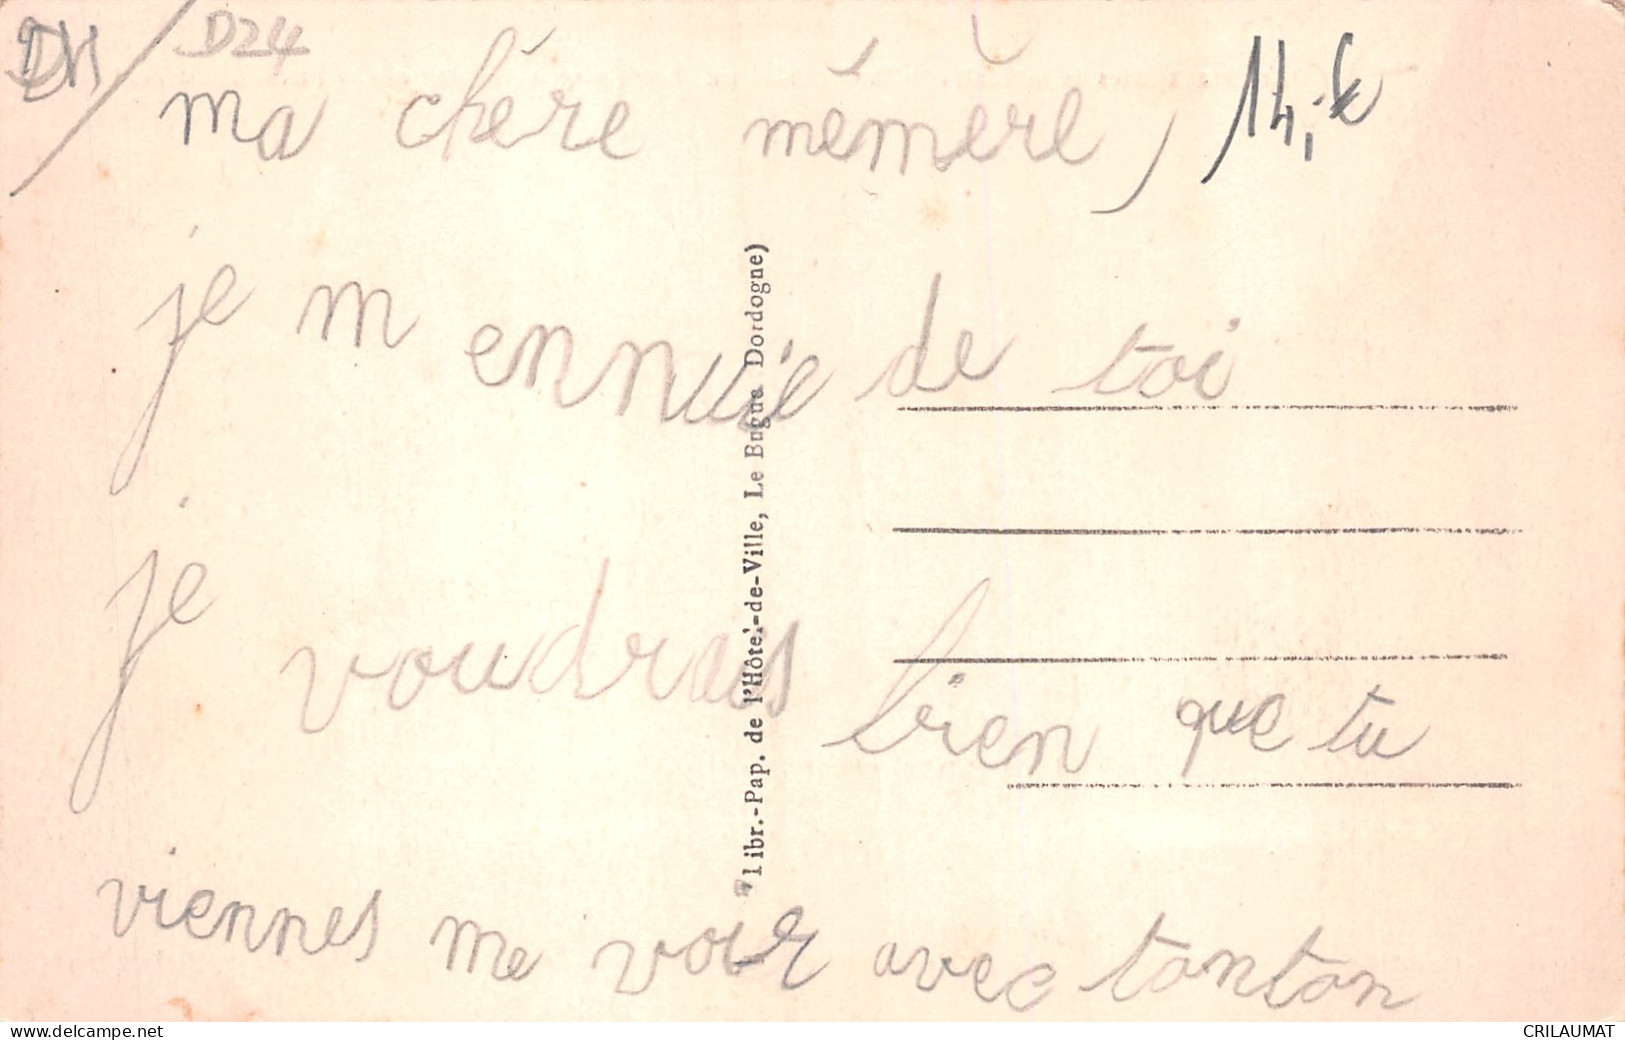 D24
ma chère mémère, 14,-€
je m ennuie de toi
je voudrais bien que tu
viennes me voir avec tonton
Libr.-Pap. de l'Hôtel-de-Ville, Le Bugue Dordogne)
www.delcampe.net
CRILAUMAT